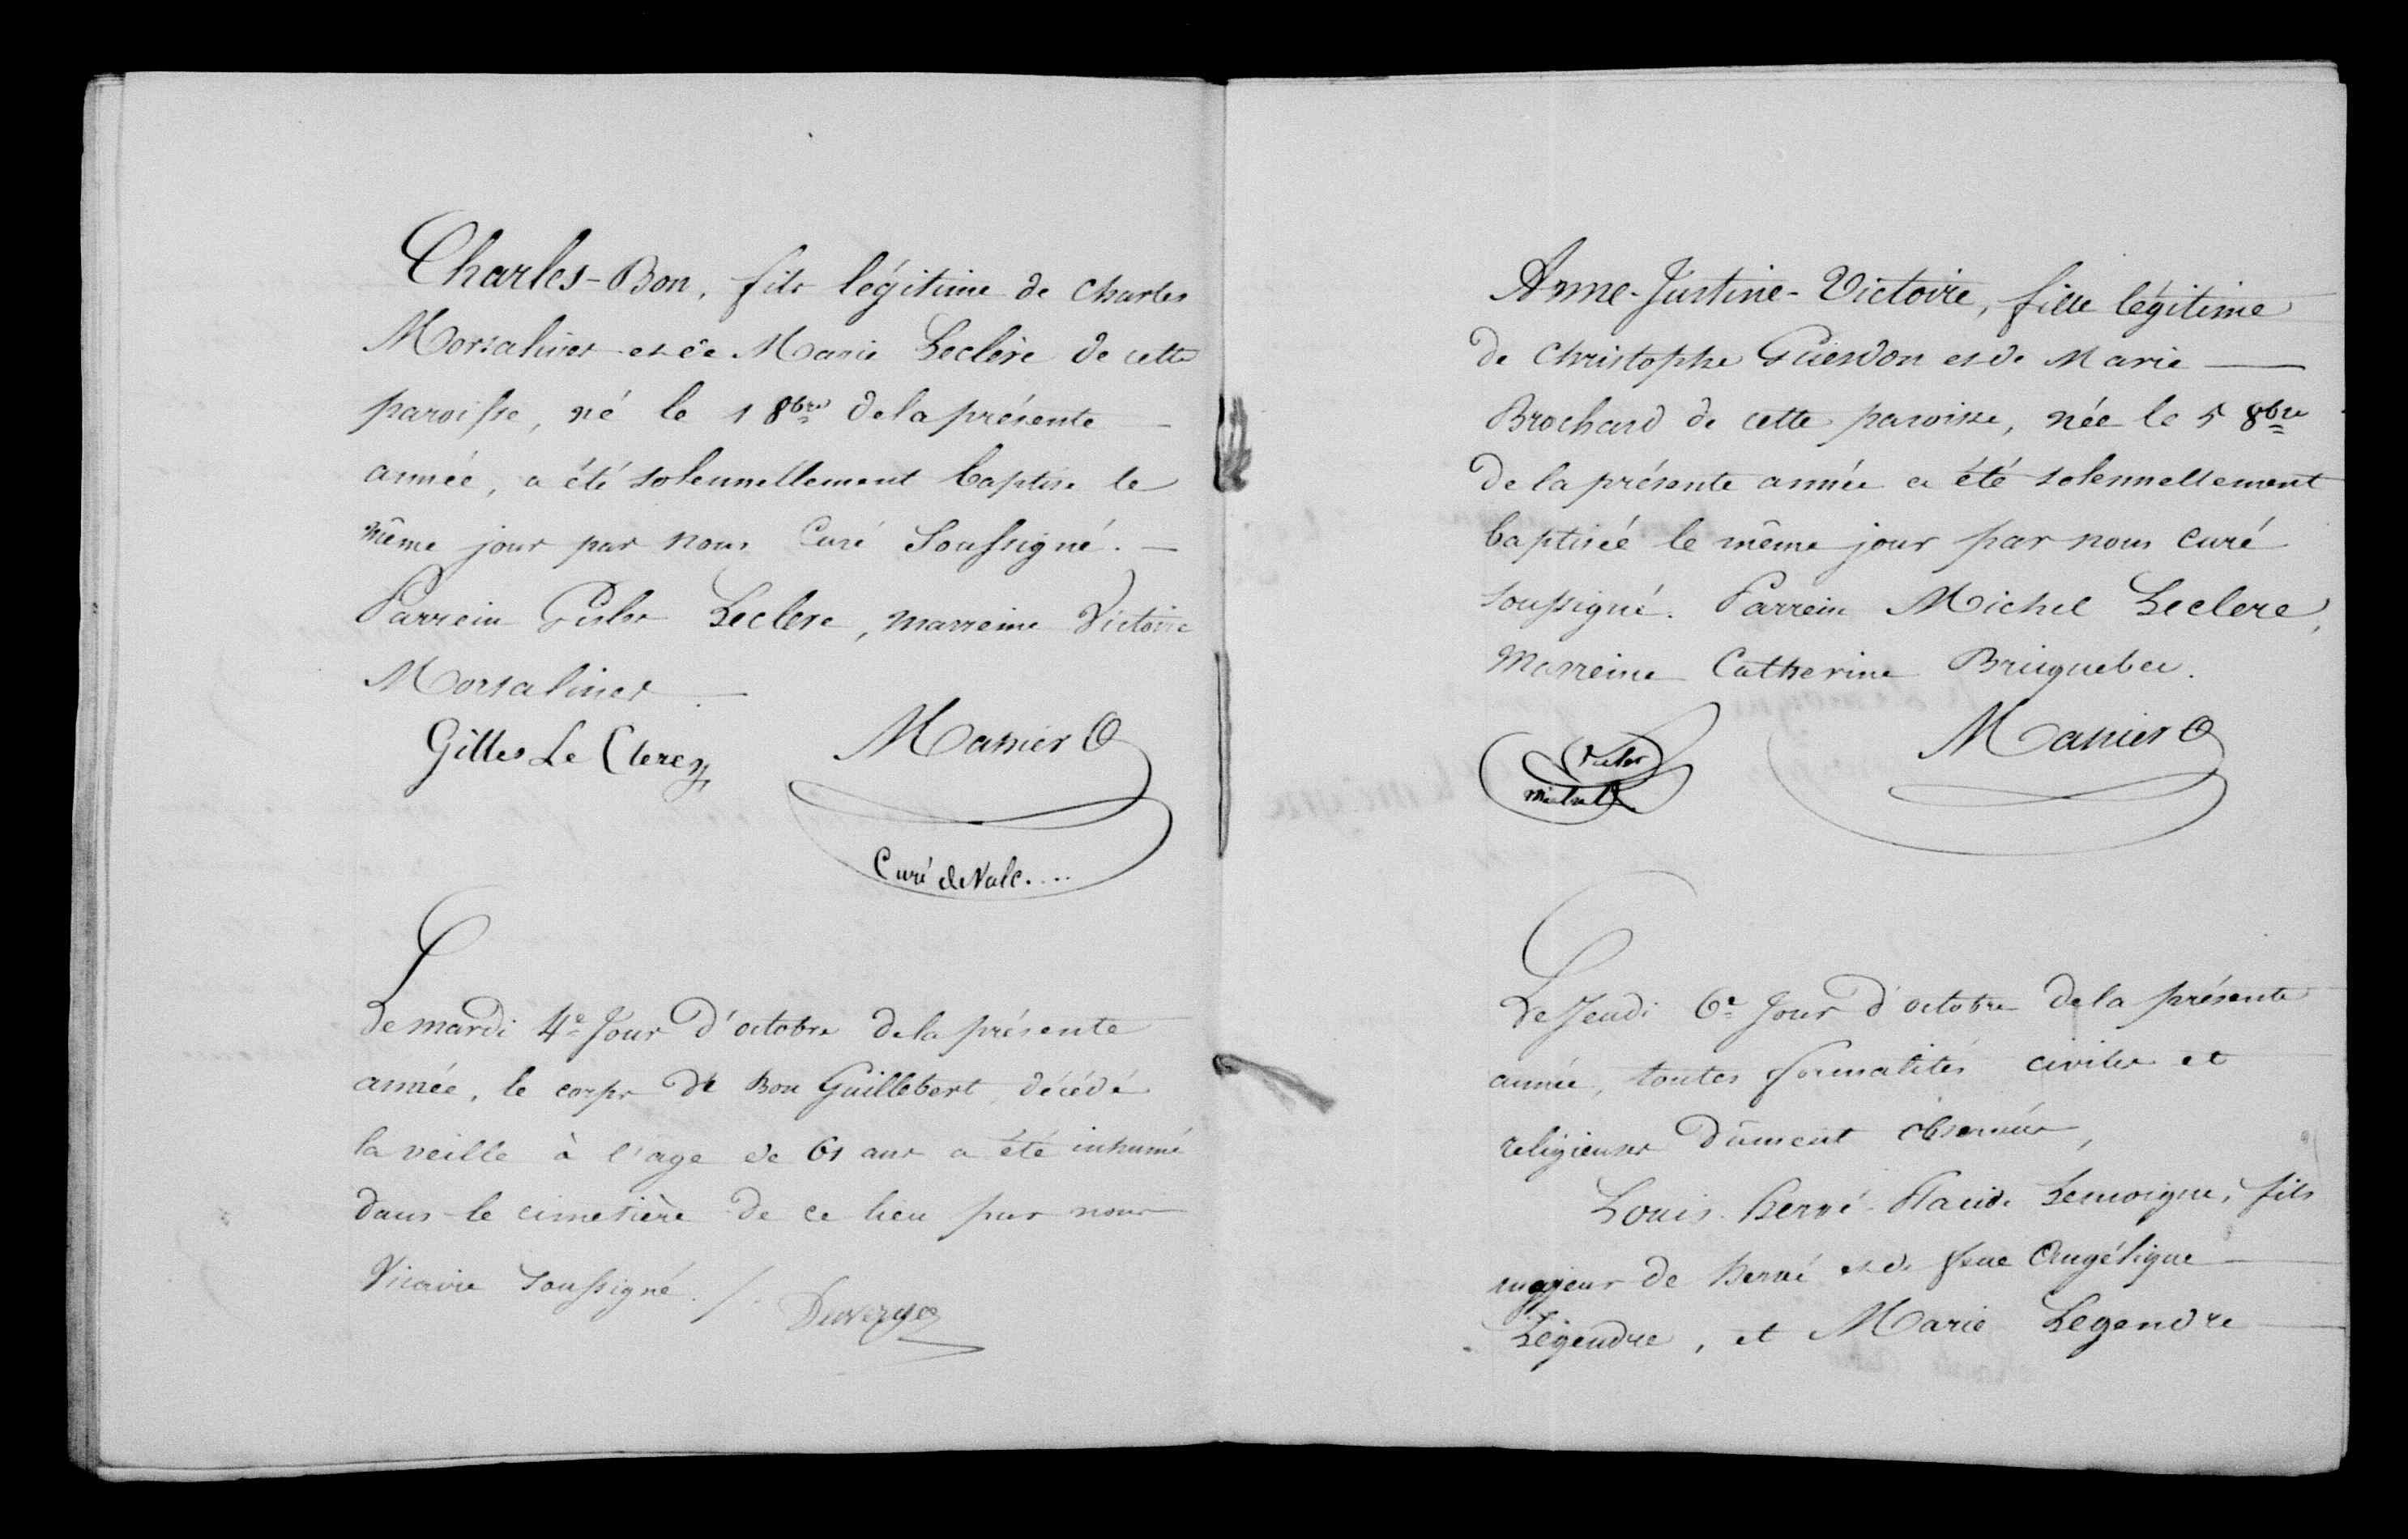 Charles-Bon, fils légitime de Charles
Morsalines et de Marie Leclere de cette
paroisse, né le 1 8bre de la présente
année, a été solennellement baptisé le
même jour par nous Curé Soussigné.
Parrein Gisles Leclere, marreine Victoire
Morsalines
Gilles Le Clerc
Manier
Curé de Valc....
Le mardi 4e Jour d'octobre de la présente
année, le corps de Bon Guillebert décédé
la veille à l'age de 61 ans a été inhumé
dans le cimetière de ce lieu par nous
Vicaire Soussigné.
Duvergé
Anne-Justine-Victoire, fille légitime
de Christophe Guesdon et de Marie
Brochard de cette paroisse, née le 5 8bre
de la présente année a été solennellement
baptisée le même jour par nous curé
soussigné. Parrein Michel Leclere,
Marreine Catherine Briquebec.
Manier
Le Jeudi 6e Jour d'octobre de la présente
année, toutes formalités civiles et
religieuses dûment observées,
Louis-Hervé-Placide Lemoigne, fils
majeur de Hervé et de feue Angélique
Legendre, et Marie Legendre